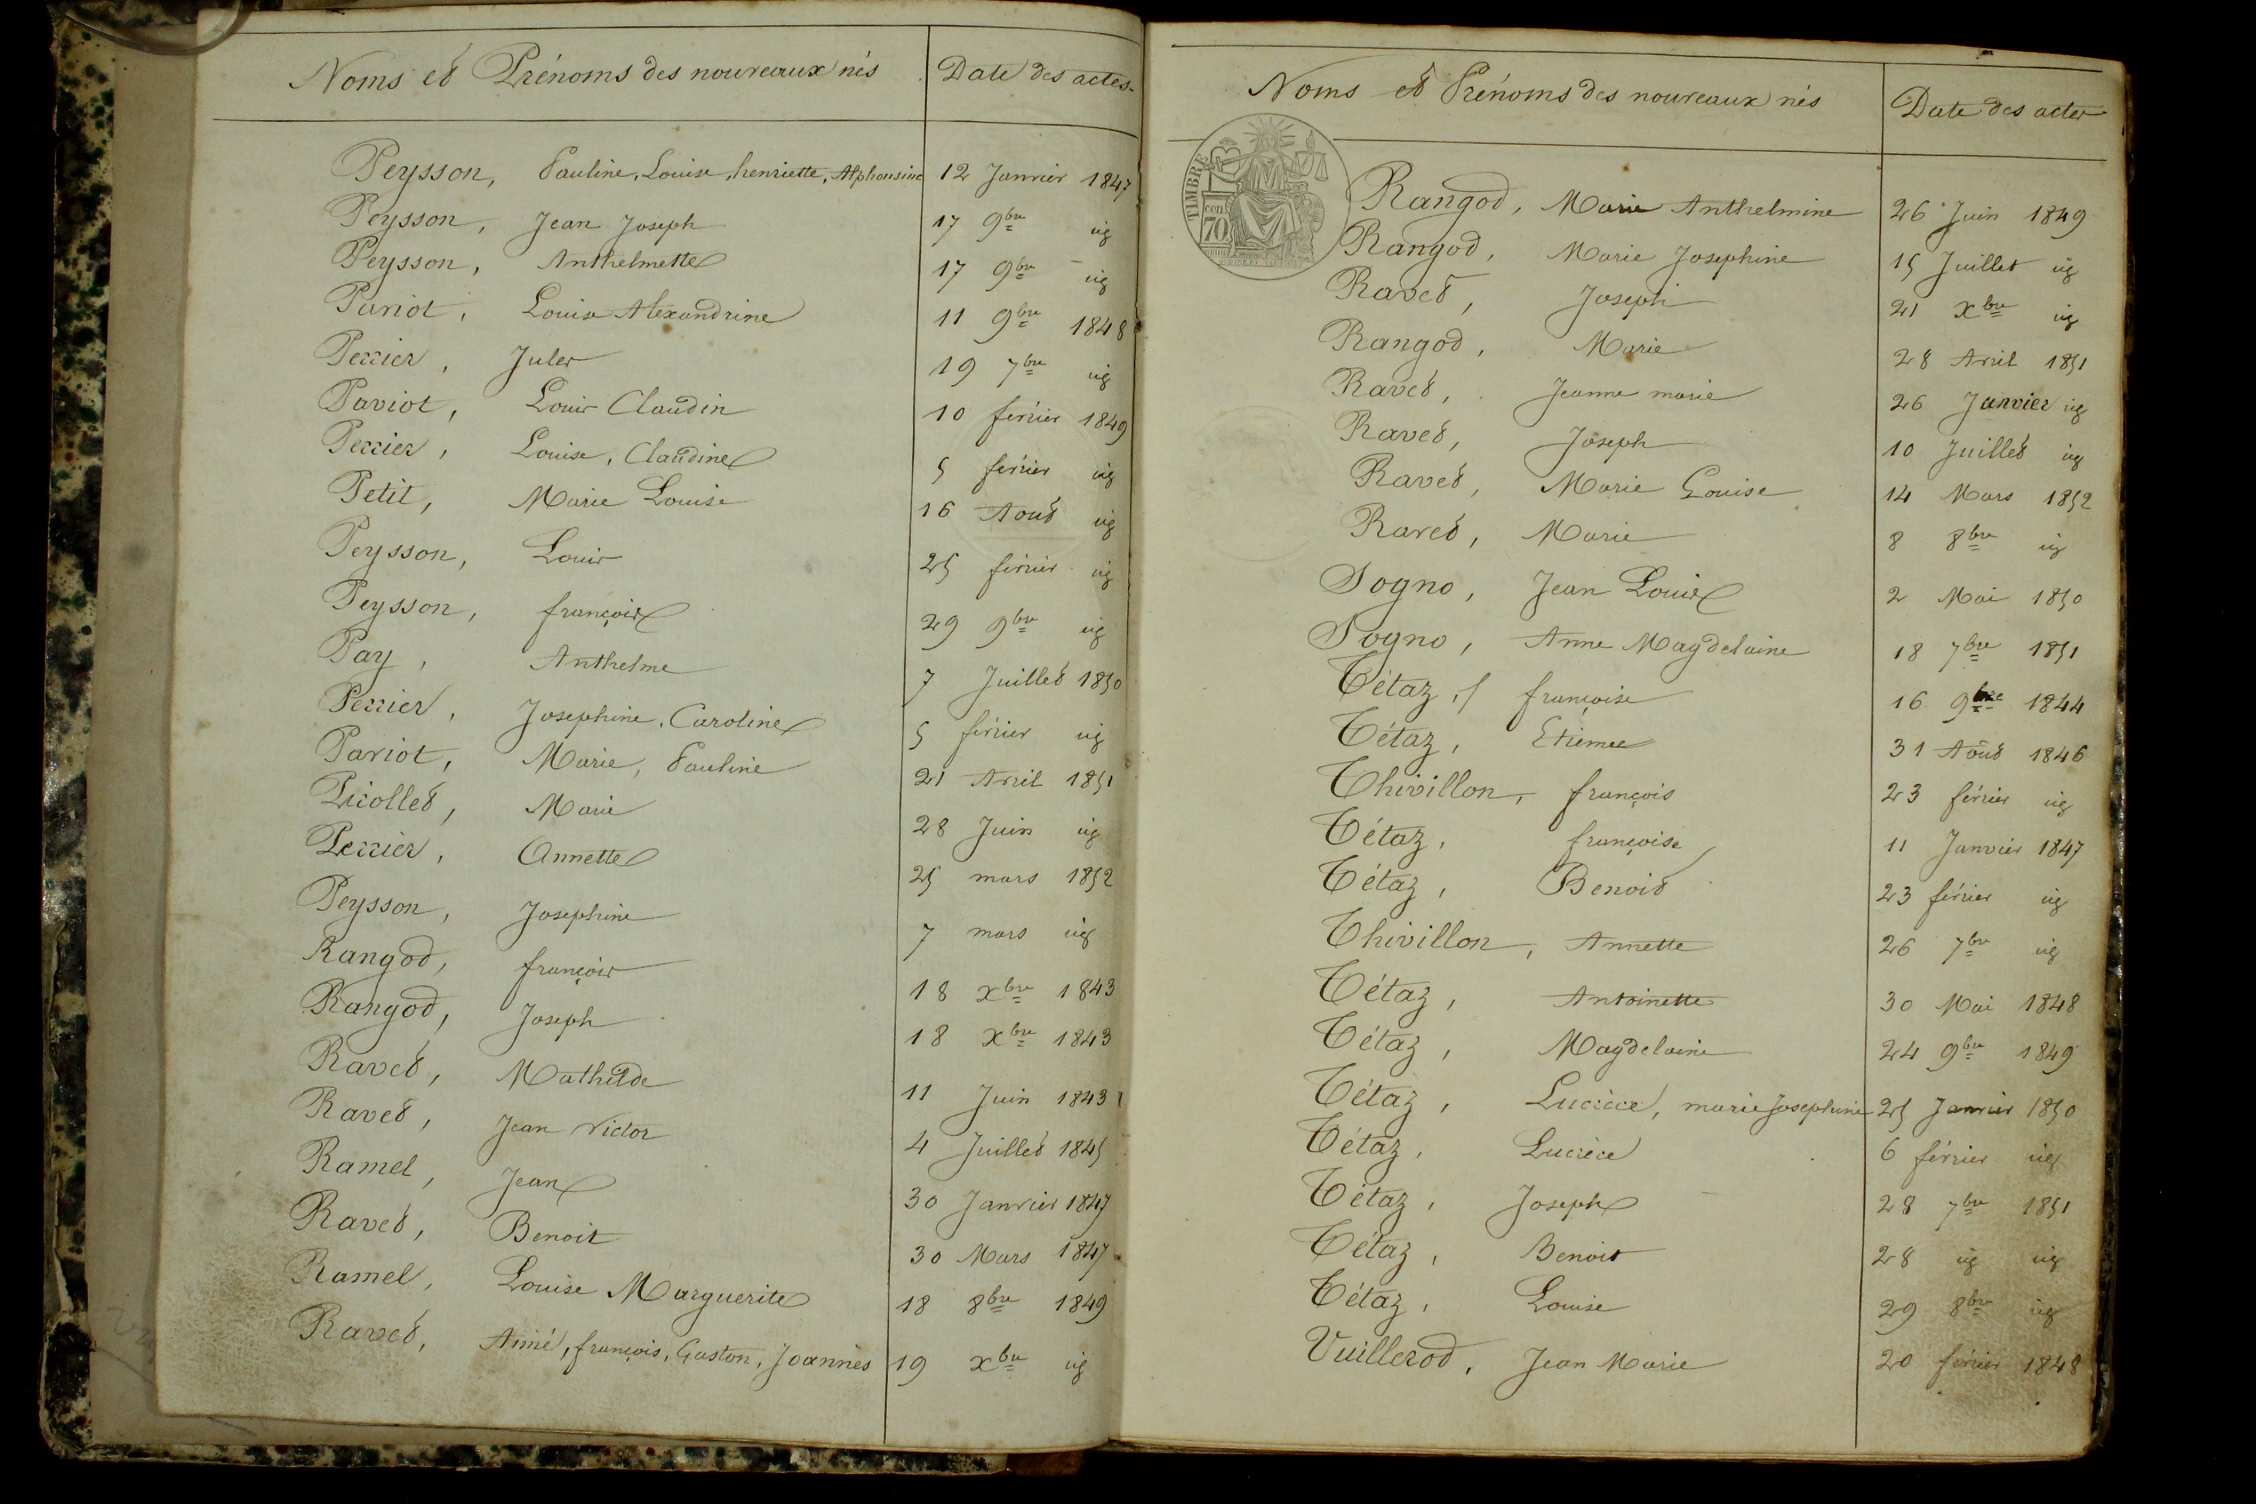 Noms et Prénoms des nouveaux nés Date des actes
Peysson, Pauline, Louise, henriette, Alphonsine 12 Janvier 1847
Peysson, Jean Joseph 17 9bre id
Peysson, Anthelmette 17 9bre id
Paviot, Louise Alexandrine 11 9bre 1848
Perrier, Jules 19 7bre id
Paviot, Louis Claudin 10 février 1849
Perrier, Louise, Claudine 5 février id
Petit, Marie Louise 16 Aout id
Peysson, Louis 25 février id
Peysson, françois 29 9bre id
Pay, Anthelme 7 Juillet 1850
Perrier, Josephine, Caroline 5 février id
Paviot, Marie, Pauline 21 Avril 1851
Picollet, Marie 28 Juin id
Perrier, Annette 25 mars 1852
Peysson, Josephine 7 mars id
Rangod, françois 18 xbre 1843
Rangod, Joseph 18 xbre 1843
Ravet, Mathilde 11 Juin 1843
Ravet, Jean Victor 4 Juillet 1845
Ramel, Jean 30 Janvier 1847
Ravet, Benoit 30 Mars 1847
Ramel, Louise Marguerite 18 8bre 1849
Ravet, Aimé, françois, Gaston, Joannès 19 xbre id
Noms et Prénoms des nouveaux nés Date des actes
TIMBRE
70
Rangod, Marie Anthelmine 26 Juin 1849
Rangod, Marie Josephine 15 Juillet id
Ravet, Joseph 21 xbre id
Rangod, Marie 28 Avril 1851
Ravet, Jeanne marie 26 Janvier id
Ravet, Joseph 10 Juillet id
Ravet, Marie Louise 14 Mars 1852
Ravet, Marie 8 8bre id
Sogno, Jean Louis 2 Mai 1850
Sogno, Anne Magdelaine 18 7bre 1851
Tétaz, françoise 16 9bre 1844
Tétaz, Etienne 31 Aout 1846
Thivillon, françois 23 février id
Tétaz, françoise 11 Janvier 1847
Tétaz, Benoit 23 février id
Thivillon, Annette 26 7bre id
Tétaz, Antoinette 30 Mai 1848
Tétaz, Magdelaine 24 9bre 1849
Tétaz, Lucrèce, marie Josephine 25 Janvier 1850
Tétaz, Lucrèce 6 février id
Tétaz, Joseph 28 7bre 1851
Tétaz, Benoit 28 id id
Tétaz, Louise 29 8bre id
Vuillerod, Jean Marie 20 février 1848